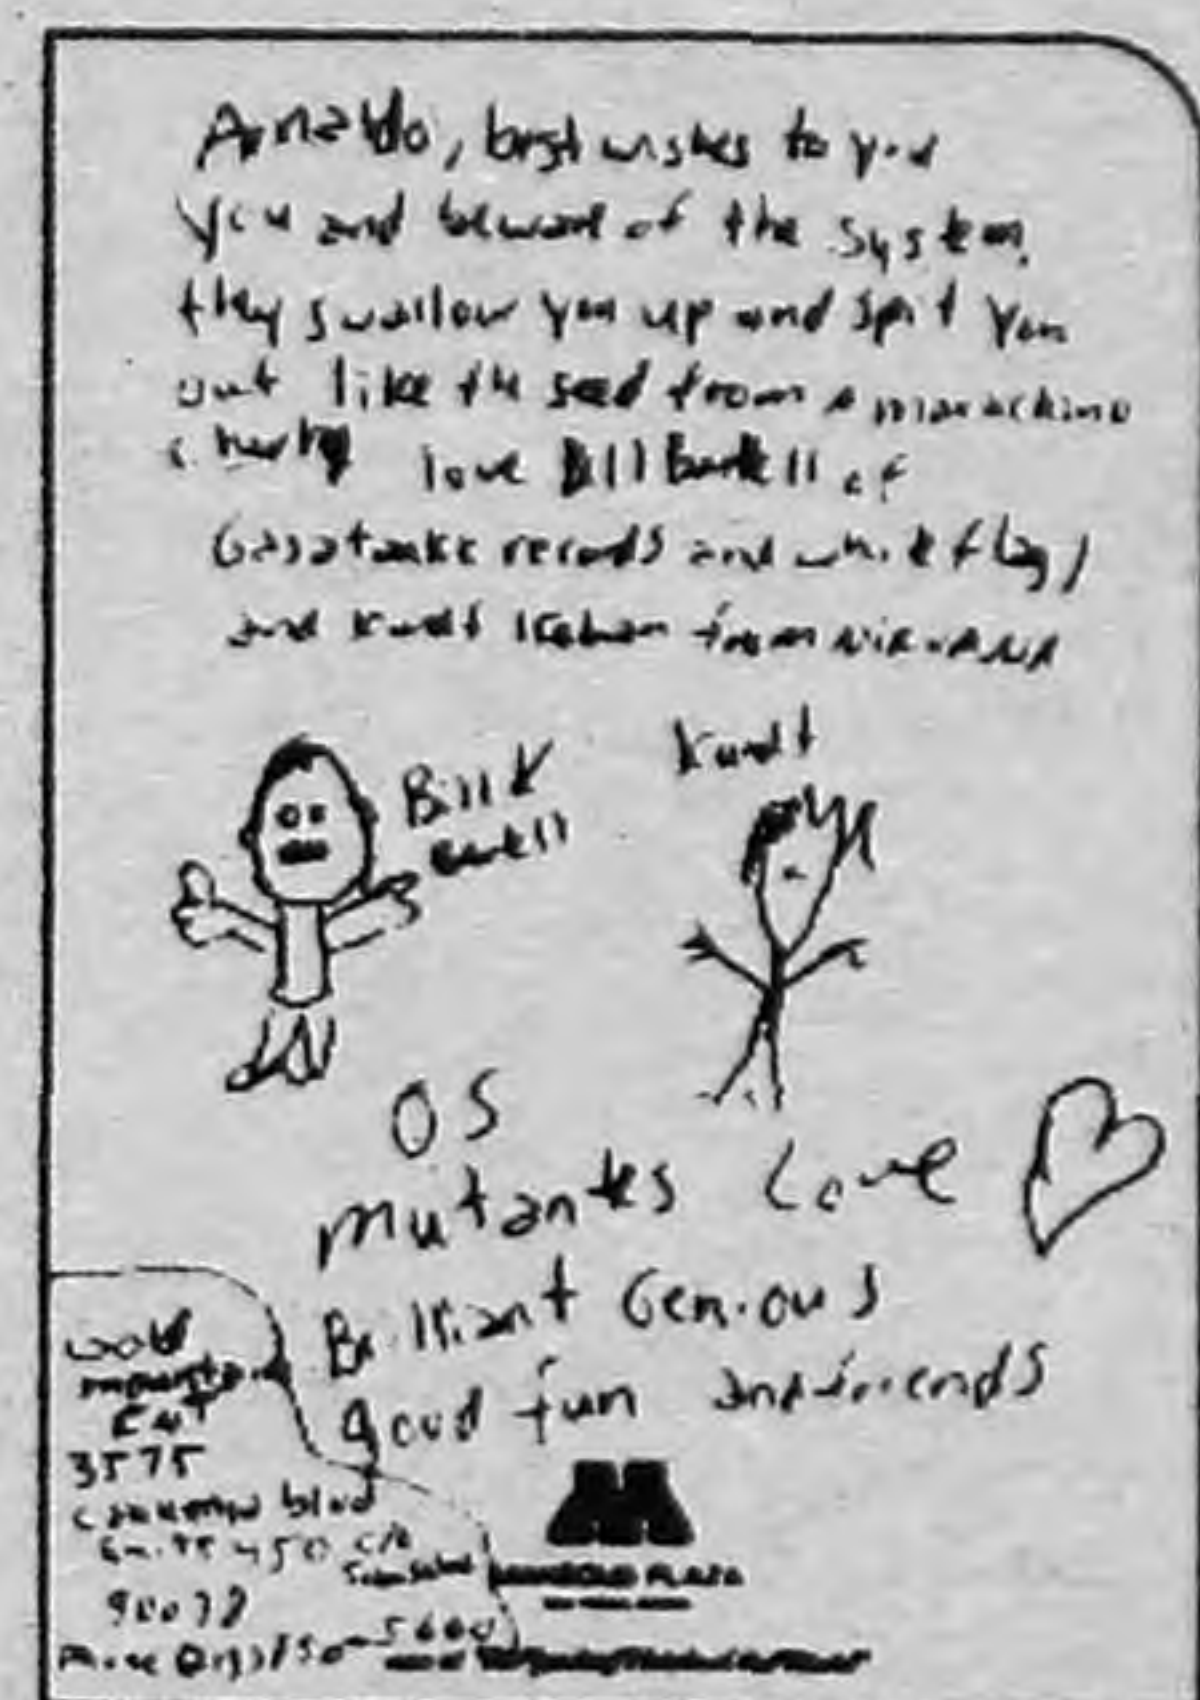 Arnaldo, best wishes to you
you and beware of the system.
they swallow you up and spit you
out like the seed from a maraschino
cherry love Bill Bartell of
Gasatanka records and white flag,
and Kurdt Kobain from NIRVANA
Kurdt
Bill
OS
mutantes Love
Brilliant Genious
good fun and friends
3575
cahuenga blvd
suite 450 c/o
PLAZA